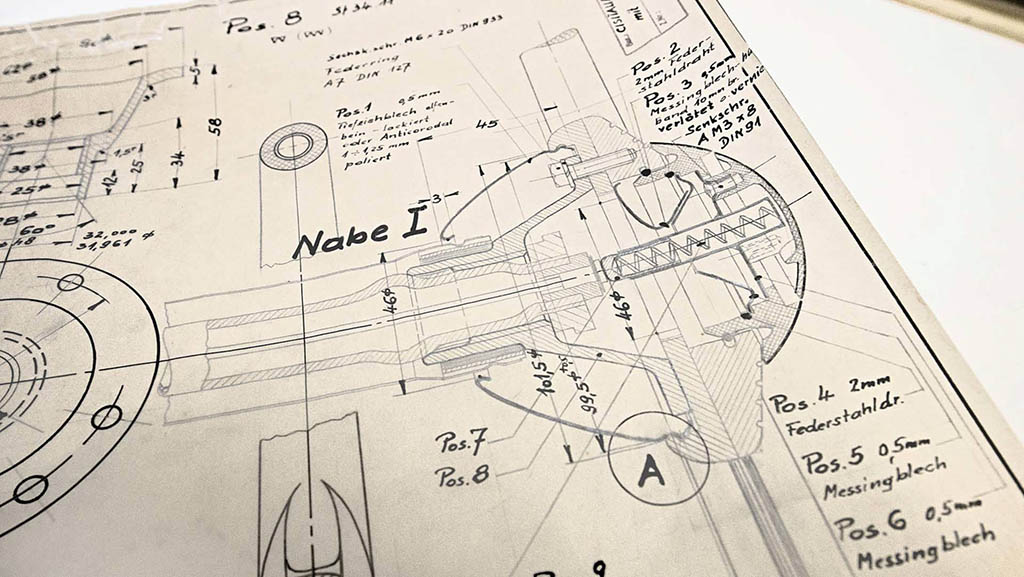 Pos. 8 St 34 11
Senksk.schr. M6 x 20 DIN 933
Federring
A7 DIN 127
Pos. 1 0,5mm
Tiefziehblech elfen-
bein-lackiert
oder Anticorodal
1-1,25 mm
poliert
mit
Pos. 2
2mm Feder-
stahldraht
Pos. 3 0,5mm
Messingblech-
band 10mm br.
verlötet o. vernie
Senkschr.
A M3 x 8
DIN 91
5
58
34
25
12
1,5
38ø
38ø
25ø
60°
32,000
31,961 ø
45
3
Nabe I
46ø
46ø
101,5ø
99,5ø
Pos. 7
Pos. 8
A
Pos. 4 2mm
Federstahldr.
Pos. 5 0,5mm
Messingblech
Pos. 6 0,5mm
Messingblech
Pos. 9